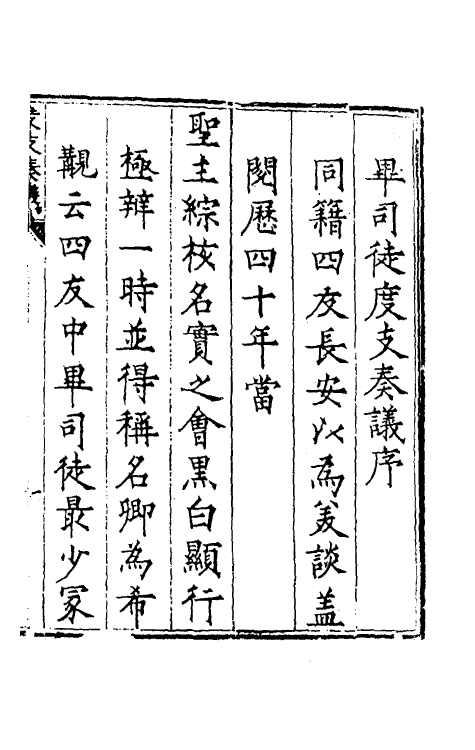 畢司徒度支奏議序
同籍四友長安以為美談盖
閱歷四十年當
聖主綜核名實之會黒白顯行
極辯一時並得稱名卿為希
覯云四友中畢司徒最少冡
度支奏議